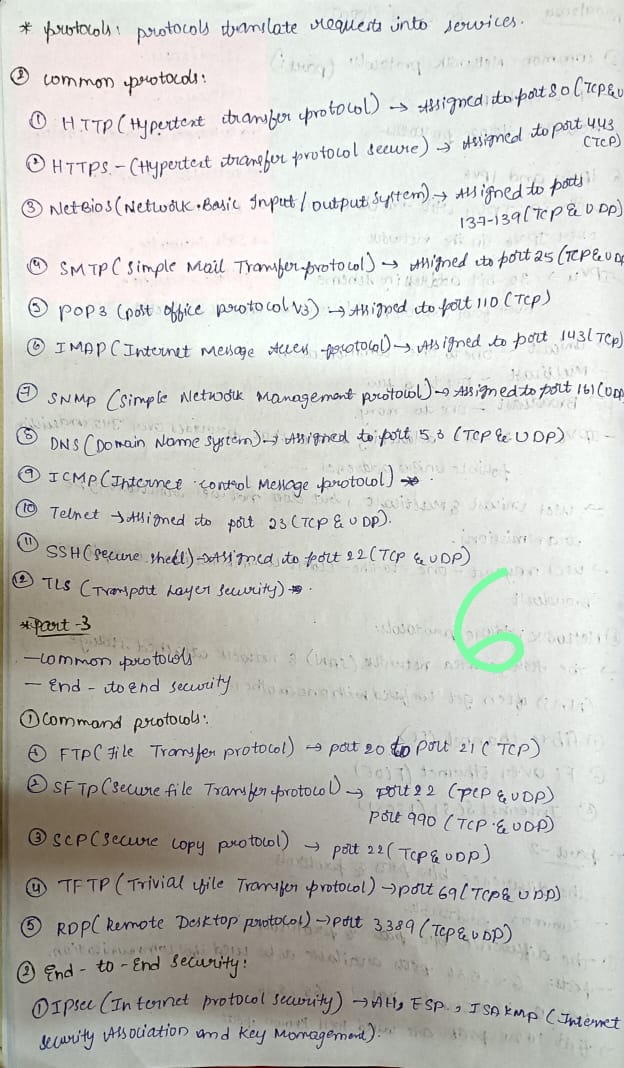 * protocols: protocols translate requests into services.
② common protocols:
① HTTP (Hypertext transfer protocol) → Assigned to port 80 (TCP & U
② HTTPS - (Hypertext transfer protocol secure) → Assigned to port 443 (TCP)
③ NetBios (Network Basic Input / output System) → Assigned to ports 137-139 (TCP & UDP)
④ SMTP (Simple Mail Transfer protocol) → Assigned to port 25 (TCP & UDP
⑤ POP3 (post office protocol V3) → Assigned to port 110 (TCP)
⑥ IMAP (Internet Message Access protocol) → Assigned to port 143 (TCP)
⑦ SNMP (Simple Network Management protocol) → Assigned to port 161 (UDP
⑧ DNS (Domain Name System) → Assigned to port 53 (TCP & UDP)
⑨ ICMP (Internet control Message protocol) → .
⑩ Telnet → Assigned to port 23 (TCP & UDP).
⑪ SSH (secure shell) → Assigned to port 22 (TCP & UDP)
⑫ TLS (Transport Layer Security) → .
6
* Part -3
- common protocols
- End - to End security
① Command protocols:
① FTP (File Transfer protocol) → port 20 to Port 21 (TCP)
② SFTP (Secure file Transfer protocol) → Port 22 (TCP & UDP)
Port 990 (TCP & UDP)
③ SCP (Secure copy protocol) → port 22 (TCP & UDP)
④ TFTP (Trivial file Transfer protocol) → port 69 (TCP & UDP)
⑤ RDP (Remote Desktop protocol) → port 3389 (TCP & UDP)
② End - to - End Security:
① IPsec (Internet protocol security) → AH, ESP, ISAKMP (Internet
security Association and Key Management).